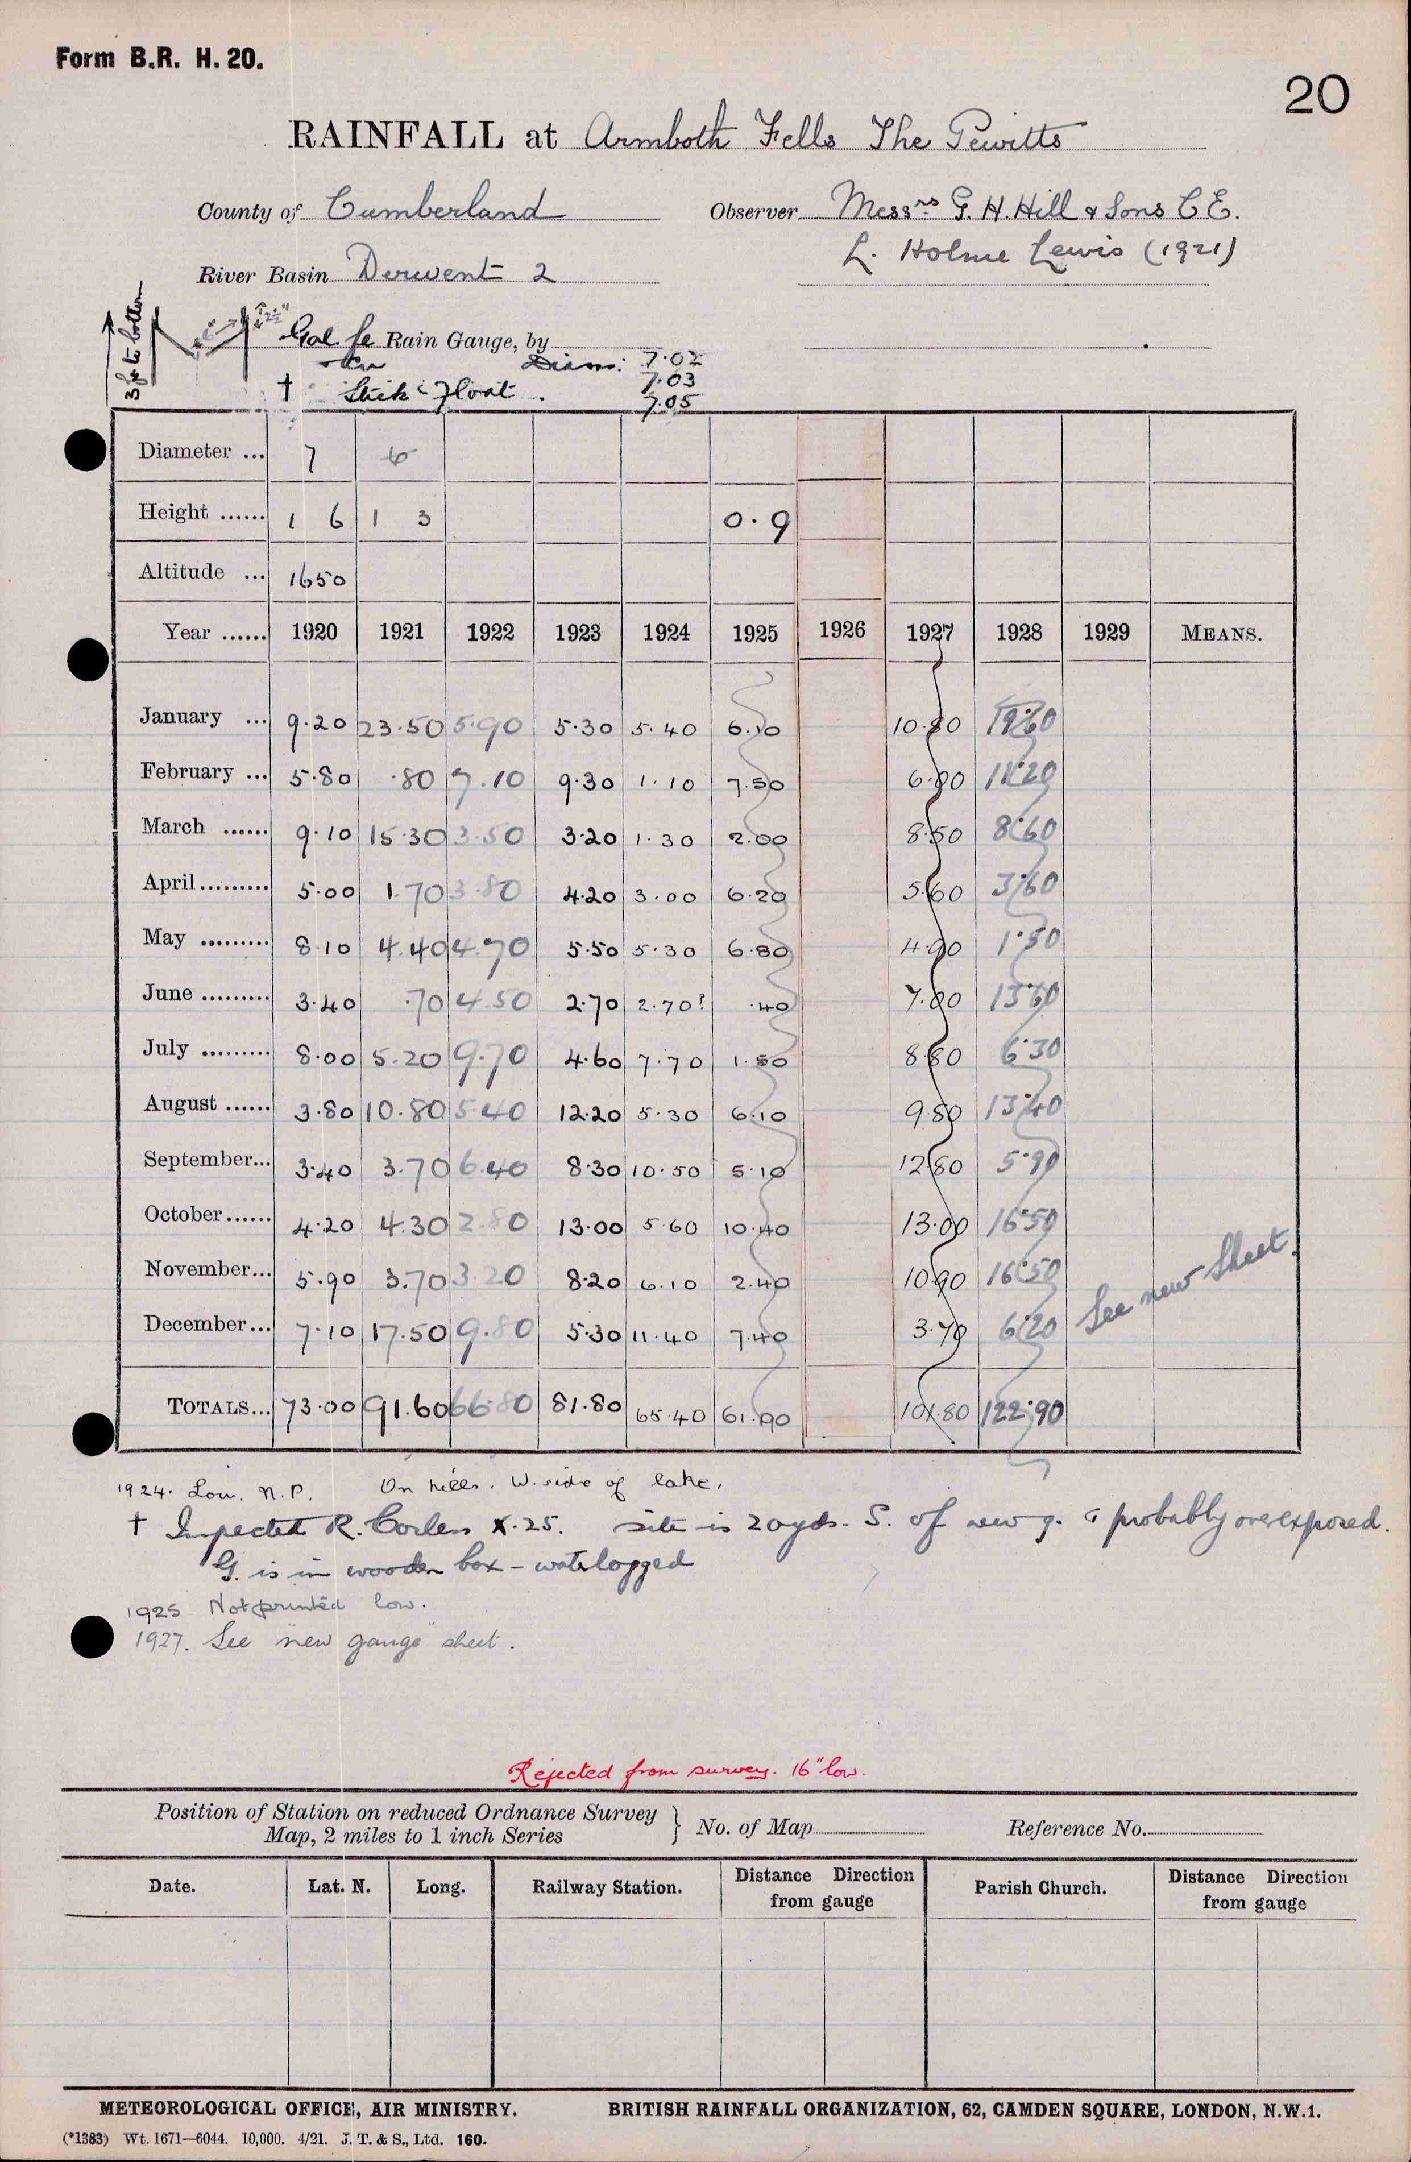 Form B.R. H. 20.
20
RAINFALL at Armboth Fells The Pewitts
County of Cumberland Observer Messrs G. H. Hill & Sons C E.
L. Holme Lewis (1921)
River Basin Derwent 2
3 ft to bottom
Gal fe Rain Gauge, by
Cu Diam: 7.02
† Stick & Float. 7.03
7.05
Diameter ... 7 6
Height ...... 1 6 1 3 0.9
Altitude ... 1650
Year ...... 1920 1921 1922 1923 1924 1925 1926 1927 1928 1929 MEANS.
January ... 9.20 23.50 5.90 5.30 5.40 6.10 10.80 19.60
February ... 5.80 .80 7.10 9.30 1.10 7.50 6.90 11.20
March ...... 9.10 15.30 3.50 3.20 1.30 2.00 8.50 8.60
April ......... 5.00 1.70 3.80 4.20 3.00 6.20 5.60 3.60
May ......... 8.10 4.40 4.70 5.50 5.30 6.80 4.90 1.50
June ......... 3.40 .70 4.50 2.70 2.70? .40 7.00 13.60
July ......... 8.00 5.20 9.70 4.60 7.70 1.50 8.80 6.30
August ...... 3.80 10.80 5.40 12.20 5.30 6.10 9.80 13.40
September... 3.40 3.70 6.40 8.30 10.50 5.10 12.80 5.90
October...... 4.20 4.30 2.80 13.00 5.60 10.40 13.00 16.50
November... 5.90 3.70 3.20 8.20 6.10 2.40 10.90 16.50
December... 7.10 17.50 9.80 5.30 11.40 7.40 3.70 6.20
See new Sheet.
TOTALS... 73.00 91.60 66.80 81.80 65.40 61.90 101.80 122.90
1924. Low. N.P. On hills. W. side of lake.
† Inspected R. Corless X.25. site is 20 yds. S. of new g. & probably overexposed.
G. is in wooden box - waterlogged
1925 Not printed low.
1927. See "new gauge" sheet.
Rejected from survey. 16" low.
Position of Station on reduced Ordnance Survey Map, 2 miles to 1 inch Series } No. of Map Reference No.
Date. Lat. N. Long. Railway Station. Distance Direction from gauge Parish Church. Distance Direction from gauge
METEOROLOGICAL OFFICE, AIR MINISTRY. BRITISH RAINFALL ORGANIZATION, 62, CAMDEN SQUARE, LONDON, N.W.1.
(*1383) Wt. 1671—6044. 10,000. 4/21. J. T. & S., Ltd. 160.